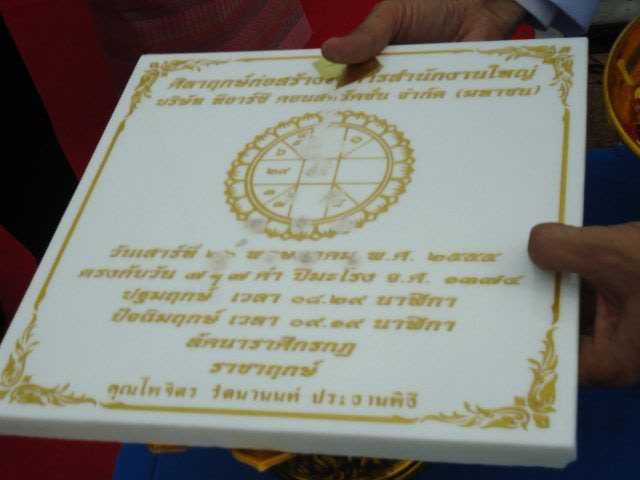 ศิลาฤกษ์ก่อสร้างอาคารสำนักงานใหญ่
บริษัท พีอาร์ซี คอนสตรัคชั่น จำกัด (มหาชน)
๒๙
วันเสาร์ที่ พฤษภาคม พ.ศ. ๒๕๕๕
ตรงกับวัน ๗ ฯ ๗ ค่ำ ปีมะโรง จ.ศ. ๑๓๗๔
ปฐมฤกษ์ เวลา ๐๘.๒๙ นาฬิกา
ปัจฉิมฤกษ์ เวลา ๐๙.๑๙ นาฬิกา
ลัคนาราศีกรกฎ
ราชาฤกษ์
คุณไพจิตร รัตนานนท์ ประธานพิธี